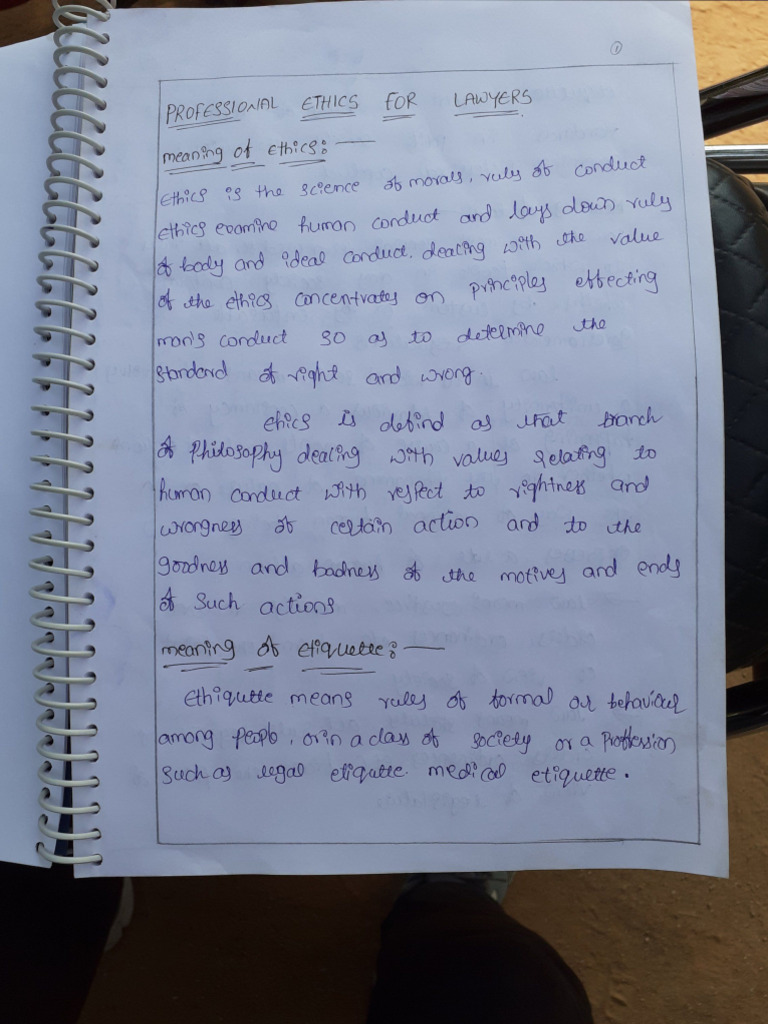 ①
PROFESSIONAL ETHICS FOR LAWYERS.
meaning of ethics:—
Ethics is the science of morals, rules of conduct
ethics examine human conduct and lays down rules
of body and ideal conduct. dealing with the value
of the ethics concentrates on principles effecting
man's conduct so as to determine the
standard of right and wrong.
ethics is defind as that branch
of Philosophy dealing with values relating to
human conduct with respect to rightness and
wrongness of certain action and to the
goodness and badness of the motives and ends
of such actions
meaning of etiquette:—
Ethiqutte means rules of formal or behaviour
among people, or in a class of society or a Proffession
such as legal etiqutte. medical etiquette.